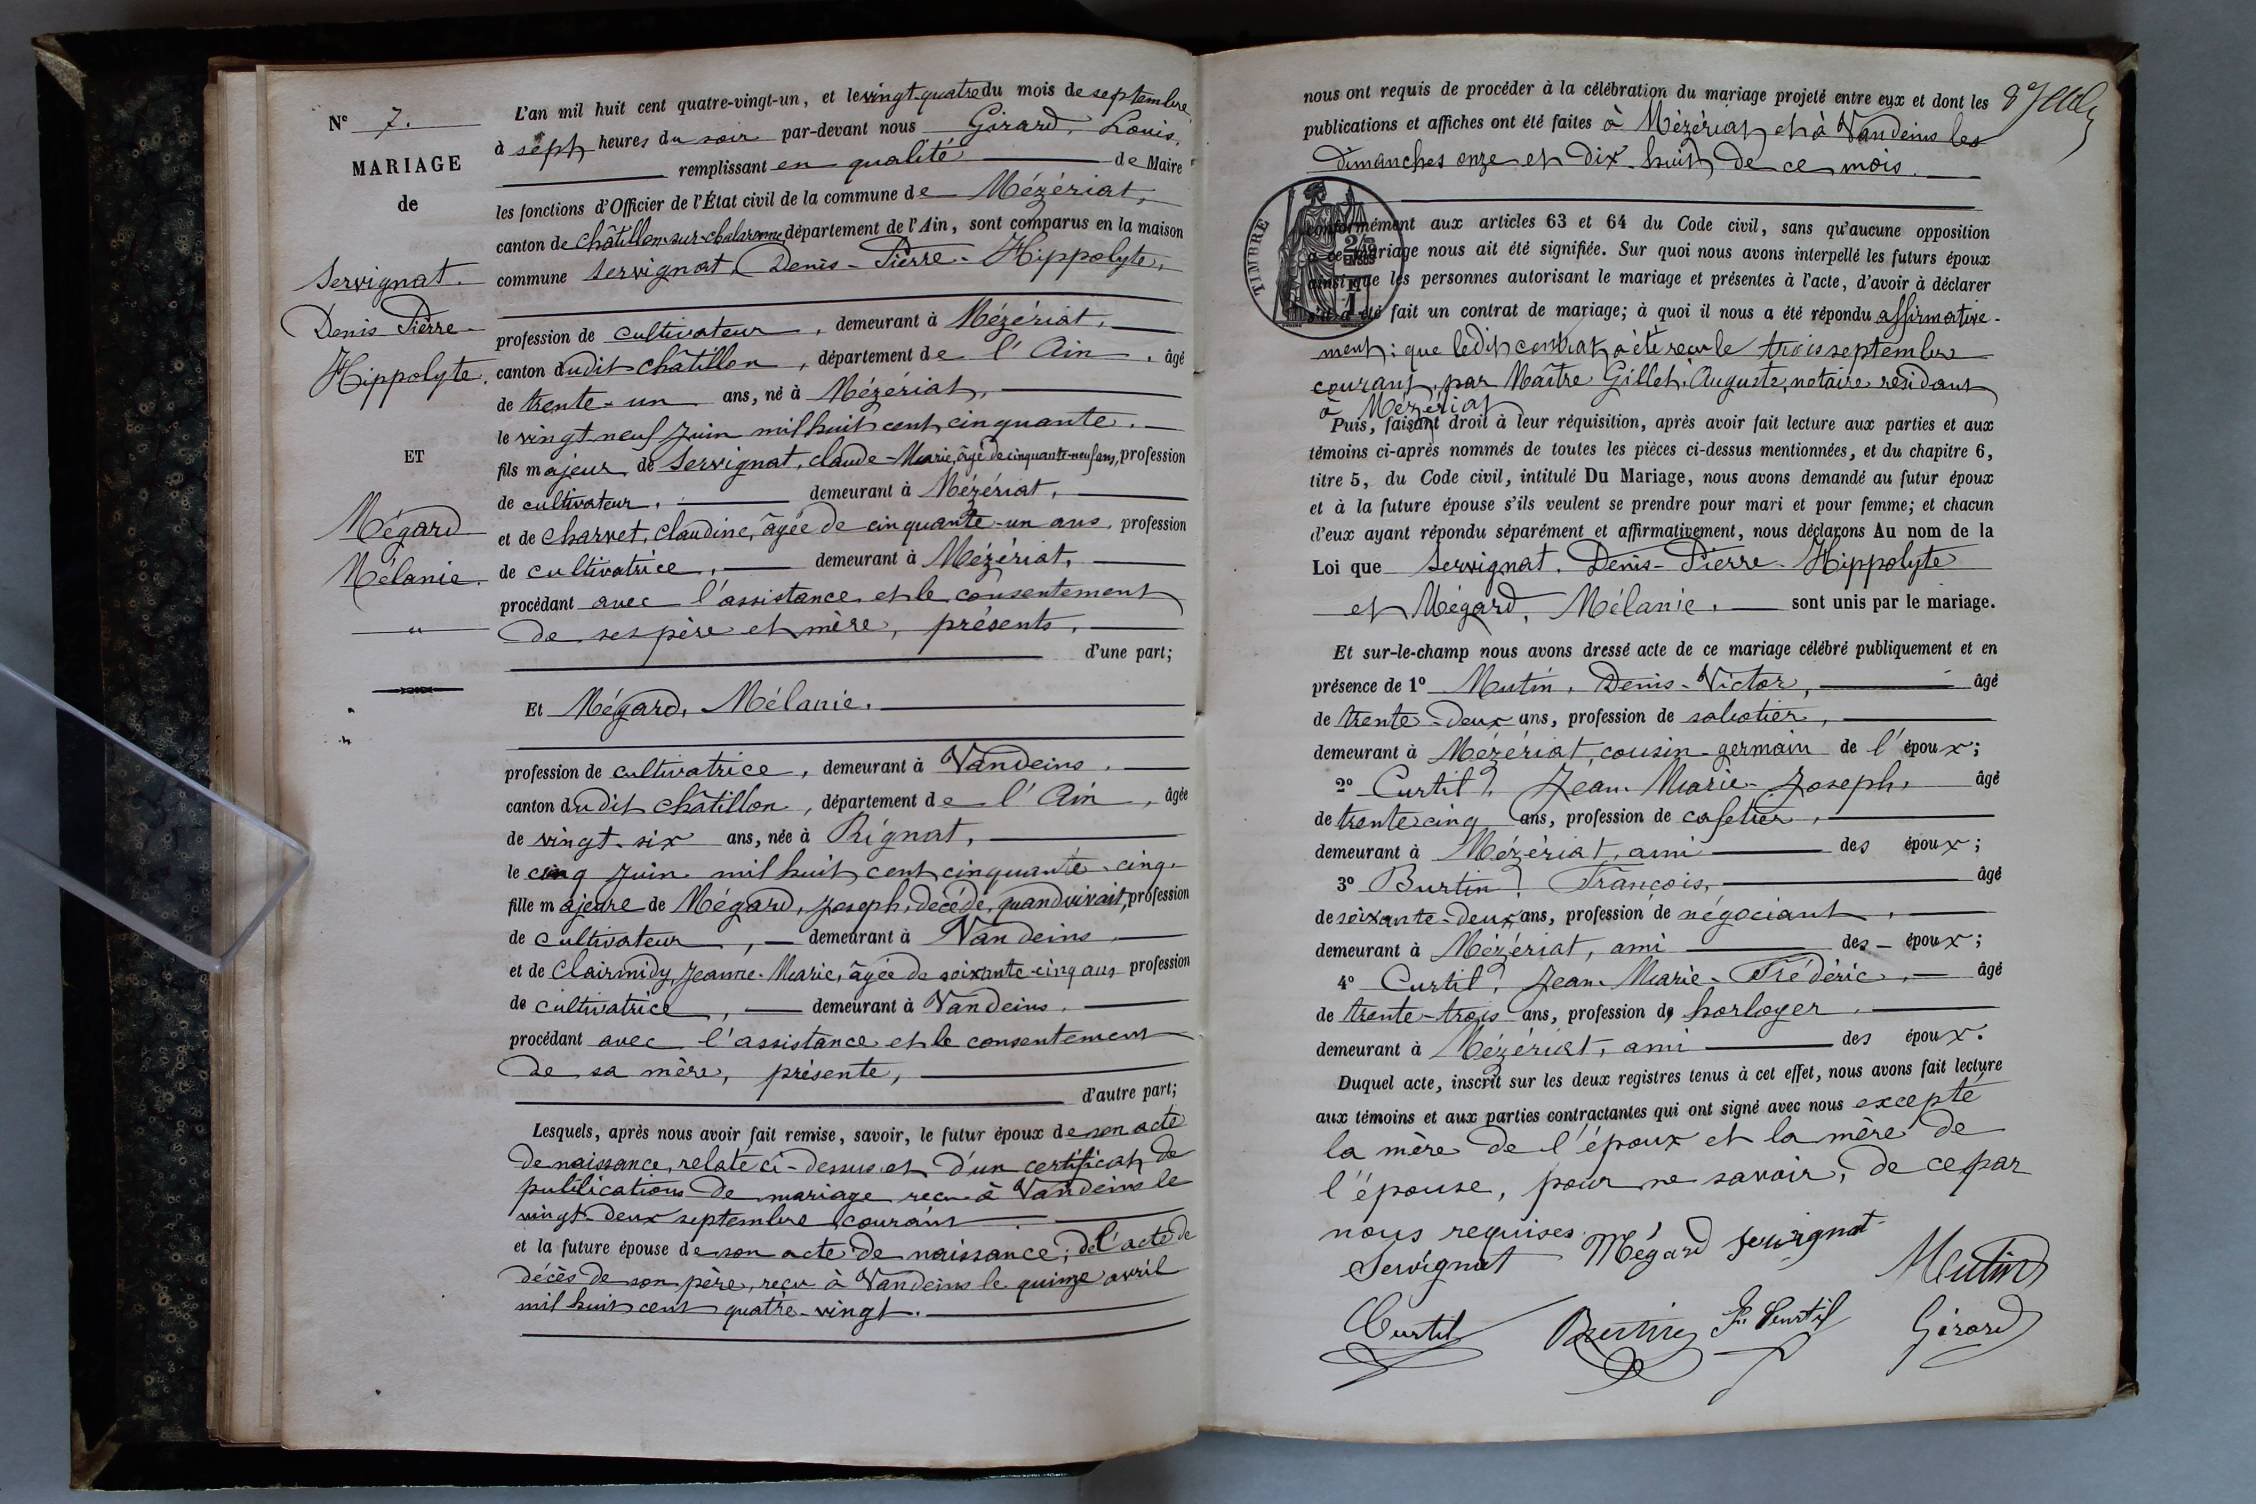 N° 7.
MARIAGE
de
Servignat.
Denis Pierre
Hippolyte.
ET
Mégard
Mélanie.
"
L'an mil huit cent quatre-vingt-un, et le vingt-quatre du mois de septembre
à sept heures du soir par-devant nous Girard, Louis,
remplissant en qualité de Maire
les fonctions d'Officier de l'État civil de la commune de Mézériat,
canton de châtillon-sur-chalaronne, département de l'Ain, sont comparus en la maison
commune Servignat, Denis-Pierre-Hippolyte,
profession de cultivateur, demeurant à Mézériat,
canton dudit châtillon, département de l'Ain, âgé
de trente-un ans, né à Mézériat,
le vingt-neuf Juin mil huit cent cinquante.
fils majeur de Servignat, claude-Marie, âgé de cinquante-neuf ans, profession
de cultivateur, demeurant à Mézériat,
et de charvet, claudine, âgée de cinquante-un ans, profession
de cultivatrice, demeurant à Mézériat,
procédant avec l'assistance et le consentement
de ses père et mère, présents,
d'une part;
Et Mégard, Mélanie,
profession de cultivatrice, demeurant à Vandeins,
canton dudit châtillon, département de l'Ain, âgée
de vingt-six ans, née à Rignat,
le cinq Juin mil huit cent cinquante-cinq.
fille majeure de Mégard, Joseph, décédé, quand vivait, profession
de cultivateur, demeurant à Vandeins
et de Clairmidy, Jeanne-Marie, âgée de soixante-cinq ans profession
de cultivatrice, demeurant à Vandeins.
procédant avec l'assistance et le consentement
de sa mère, présente,
d'autre part;
Lesquels, après nous avoir fait remise, savoir, le futur époux de son acte
de naissance, relaté ci-dessus et d'un certificat de
publications de mariage reçu à Vandeins le
vingt-deux septembre courant
et la future épouse de son acte de naissance; de l'acte de
décès de son père, reçu à Vandeins le quinze avril
mil huit cent quatre-vingt.
nous ont requis de procéder à la célébration du mariage projeté entre eux et dont les
publications et affiches ont été faites à Mézériat et à Vandeins les
dimanches onze et dix-huit de ce mois.
TIMBRE
conformément aux articles 63 et 64 du Code civil, sans qu'aucune opposition
à ce mariage nous ait été signifiée. Sur quoi nous avons interpellé les futurs époux
ainsi que les personnes autorisant le mariage et présentes à l'acte, d'avoir à déclarer
s'il a été fait un contrat de mariage; à quoi il nous a été répondu affirmative-
ment: que ledit contrat a été reçu le trois septembre
courant, par Maître Gillet, Auguste, notaire résidant
à Mézériat
Puis, faisant droit à leur réquisition, après avoir fait lecture aux parties et aux
témoins ci-après nommés de toutes les pièces ci-dessus mentionnées, et du chapitre 6,
titre 5, du Code civil, intitulé Du Mariage, nous avons demandé au futur époux
et à la future épouse s'ils veulent se prendre pour mari et pour femme; et chacun
d'eux ayant répondu séparément et affirmativement, nous déclarons Au nom de la
Loi que Servignat, Denis-Pierre-Hippolyte
et Mégard, Mélanie, sont unis par le mariage.
Et sur-le-champ nous avons dressé acte de ce mariage célébré publiquement et en
présence de 1° Mutin, Denis-Victor, âgé
de trente-deux ans, profession de sabotier,
demeurant à Mézériat, cousin-germain de l'époux;
2° Curtil, Jean-Marie-Joseph, âgé
de trente cinq ans, profession de cafetier,
demeurant à Mézériat, ami des époux;
3° Burtin, François, âgé
de soixante-deux ans, profession de négociant,
demeurant à Mézériat, ami des époux;
4° Curtil, Jean-Marie-Frédéric, âgé
de trente-trois ans, profession de horloger,
demeurant à Mézériat, ami des époux.
Duquel acte, inscrit sur les deux registres tenus à cet effet, nous avons fait lecture
aux témoins et aux parties contractantes qui ont signé avec nous excepté
la mère de l'époux et la mère de
l'épouse, pour ne savoir, de ce par
nous requises.
Servignat Mégard Servignat Mutin
Curtil Burtin Curtil Girard